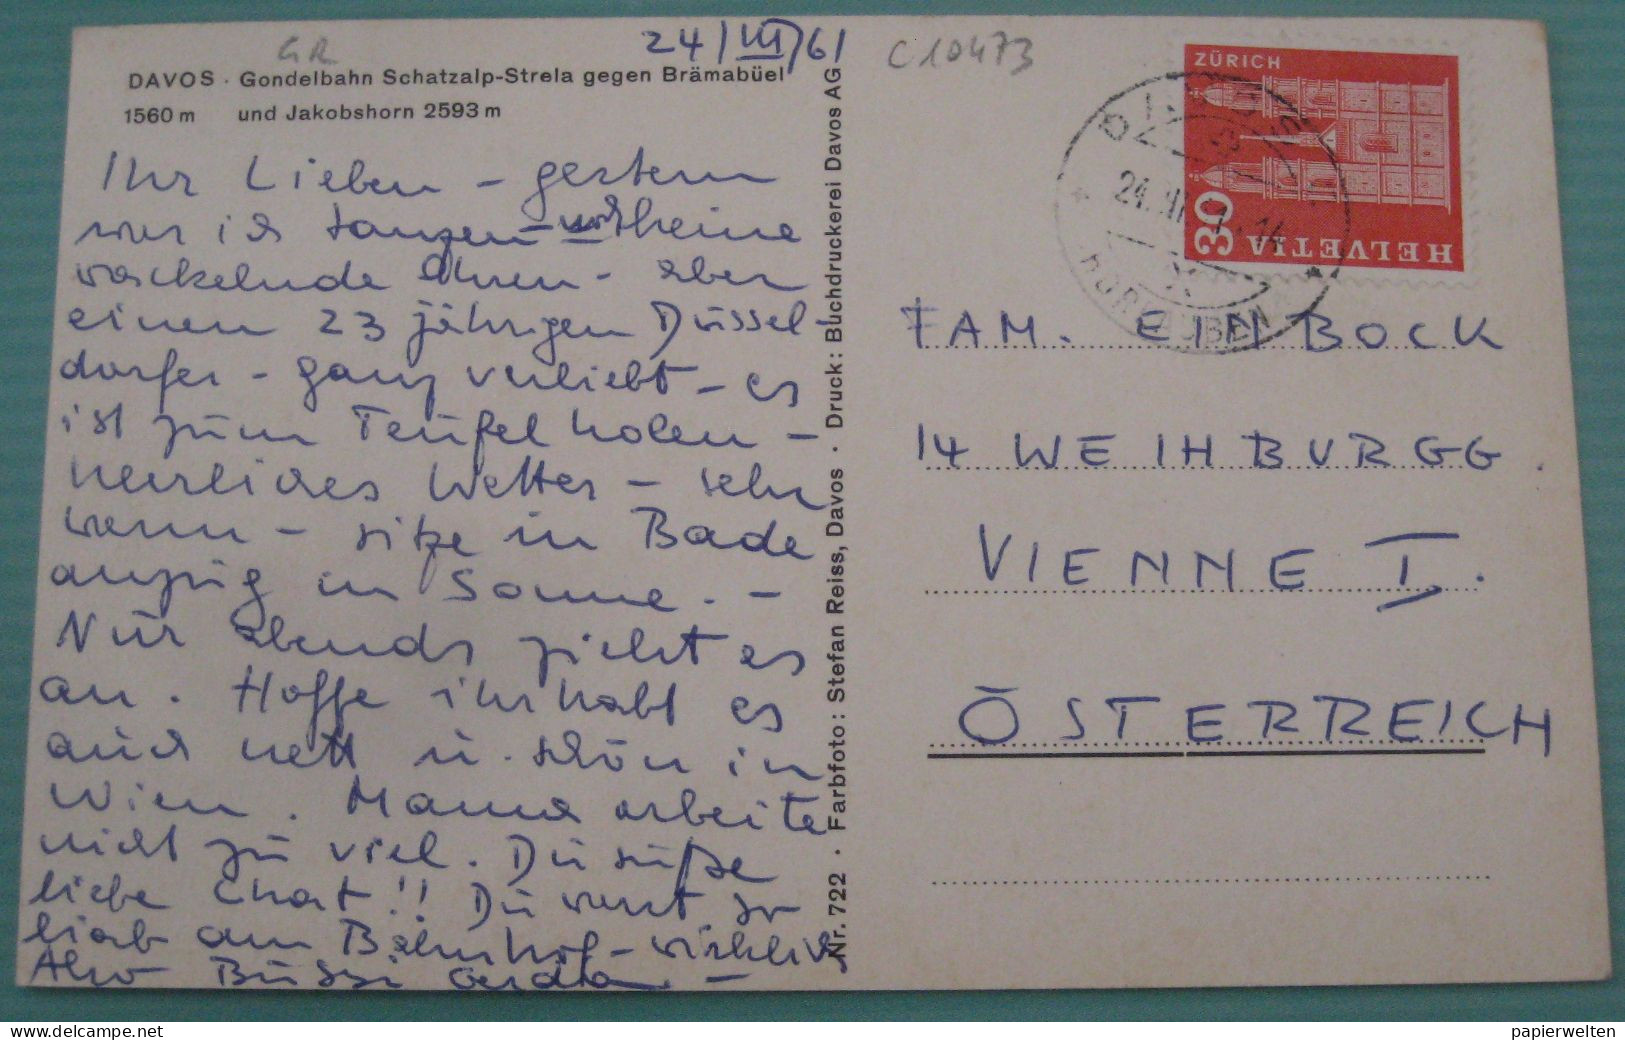 GR
24/III/61
C10473
DAVOS · Gondelbahn Schatzalp-Strela gegen Brämabüel
1560 m und Jakobshorn 2593 m
Ihr Lieben – gestern
war ich tanzen – keine
wackelnde Ahnen – aber
einen 23 jährigen Düssel-
dorfer – ganz verliebt – es
ist zum Teufel holen –
herrliches Wetter – sehr
warm – sitze in Bade
anzug in Sonne. –
Nur abends zieht es
an. Hoffe ihr habt es
auch nett u. schön in
Wien. Mama arbeite
nicht zu viel. Du süße
liebe Chat!! Du warst so
lieb am Bahnhof – wirklich
Also Bussi
Nr. 722 · Farbfoto: Stefan Reiss, Davos · Druck: Buchdruckerei Davos AG
ZÜRICH
30
HELVETIA
DAVOS
24. III. 61. 14
KURHAUBEN
FAM. EINBOCK
14 WEIHBURGG.
VIENNE I.
ÖSTERREICH
www.delcampe.net
papierwelten